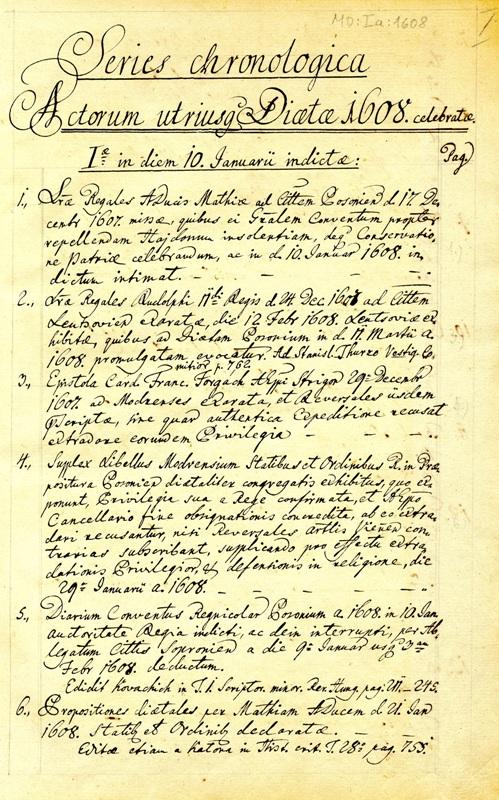 MO: Ia: 1608
I
Series chronologica
Actorum utriusq Diætæ 1608. celebratæ.
Iæ in diem 10. Januarii indictæ: Pag.
1., Lræ Regales ADucis Mathiæ ad Cttem Posonien d. 17. De
cembr 1607. missæ, quibus ei Gralem Conventum propter
repellendam Hajdonum insolentiam, deq Conservatio
ne Patriæ celebrandum, ac in d. 10. Januar 1608. in
dictum intimat. — — — —
2., Lræ Regales Rudolphi IIdi Regis d. 24 Dec 1607 ad Cttem
Leutsovien exaratæ, die 12 Febr 1608. Leutsoviæ ex
hibitæ, quibus ad Diætam Posonium in d. 11. Martii a.
1608. promulgatam evocatur. Ad Stanisl. Thurzo Vestig. Co
mitior p. 762.
3., Epistola Card. Franc. Forgach AEppi Strigon 29a Decembr
1607. ad Modrenses exarata, et Reversales iisdem
pScriptæ, sine quar authentica Expeditione recusat
extradare eorundem Privilegia — — — ..
4., Supplex libellus Modrensium Statibus et Ordinibus R. in Præ
positura Posonien diætaliser congregatis exhibitus, quo ex
ponunt, Privilegia sua a Rege confirmata, et AEppo
Cancellario fine obsignationis concredita, ab eo extra
dari recusantur, niti Reversales Arttis Vienen con
trarias subscribant, supplicando pro effectu extra
dationis Privilegior, & defensionis in religione, die
29a Januarii a. 1608. — — — — — ..
5., Diarium Conventus Regnicolar Posonium a 1608. in 10. Jan.
auctoritate Regia indicti, ac dein interrupti, per Ab,
legatum Cittis Sopronien a die 9a Januar usq 3am
Febr 1608. deductum.
Edidit Kovachich in T. I. Scriptor. minor. Rer. Hung. pag. 211 — 245.
6., Propositiones diætales per Mathiam ADucem d. 21. Jan
1608. Statib et Ordinib declaratæ. — — ..
Editæ etiam a Katona in Hist. crit. T. 28. pag. 755.